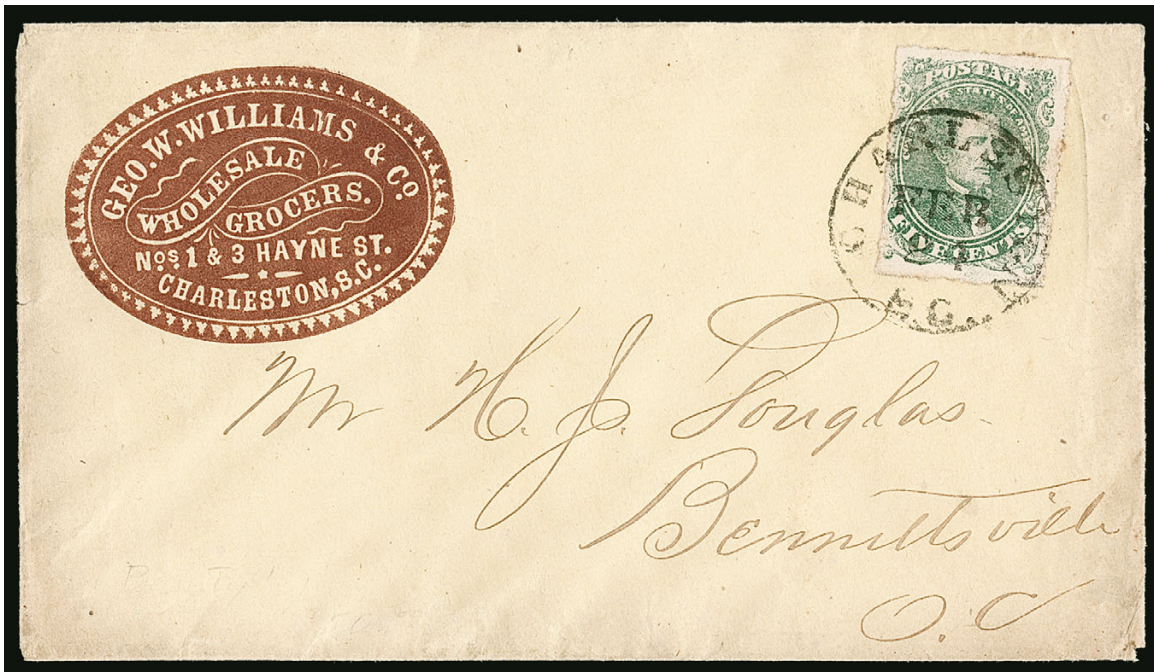 GEO. W. WILLIAMS & CO.
WHOLESALE
GROCERS.
Nos 1 & 3 HAYNE ST.
CHARLESTON, S.C.
POSTAGE
FIVE CENTS
CHARLES
FEB
S.C.
Mr H. J. Douglas
Bennettsville